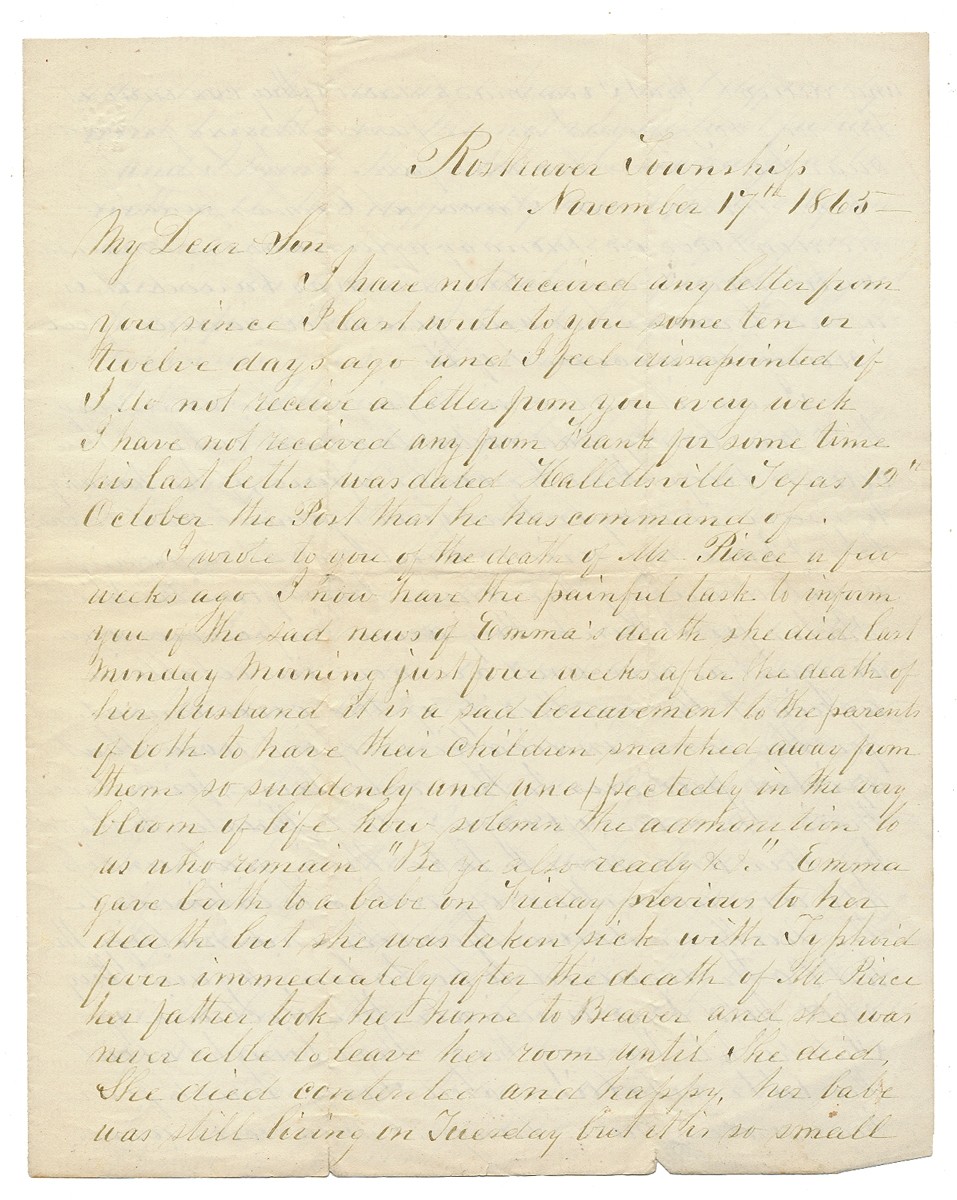 Rostraver Township
November 17th 1865
My Dear Son
I have not received any letter from
you since I last wrote to you some ten or
twelve days ago and I feel dissapointed if
I do not receive a letter from you every week
I have not received any from Frank for some time
his last letter was dated Hallettsville Texas 12th
October the Post that he has command of.
I wrote to you of the death of Mr. Pierce a few
weeks ago I now have the painful task to inform
you of the sad news of Emma's death she died last
Monday Morning just four weeks after the death of
her husband it is a sad bereavement to the parents
of both to have their children snatched away from
them so suddenly and unexpectedly in the very
bloom of life how solemn the admonition to
us who remain "Be ye also ready &c." Emma
gave birth to a babe on Friday previous to her
death but she was taken sick with Typhoid
fever immediately after the death of Mr Pierce
her father took her home to Beaver and she was
never able to leave her room until she died,
She died contented and happy, her babe
was still living on Tuesday but it is so small